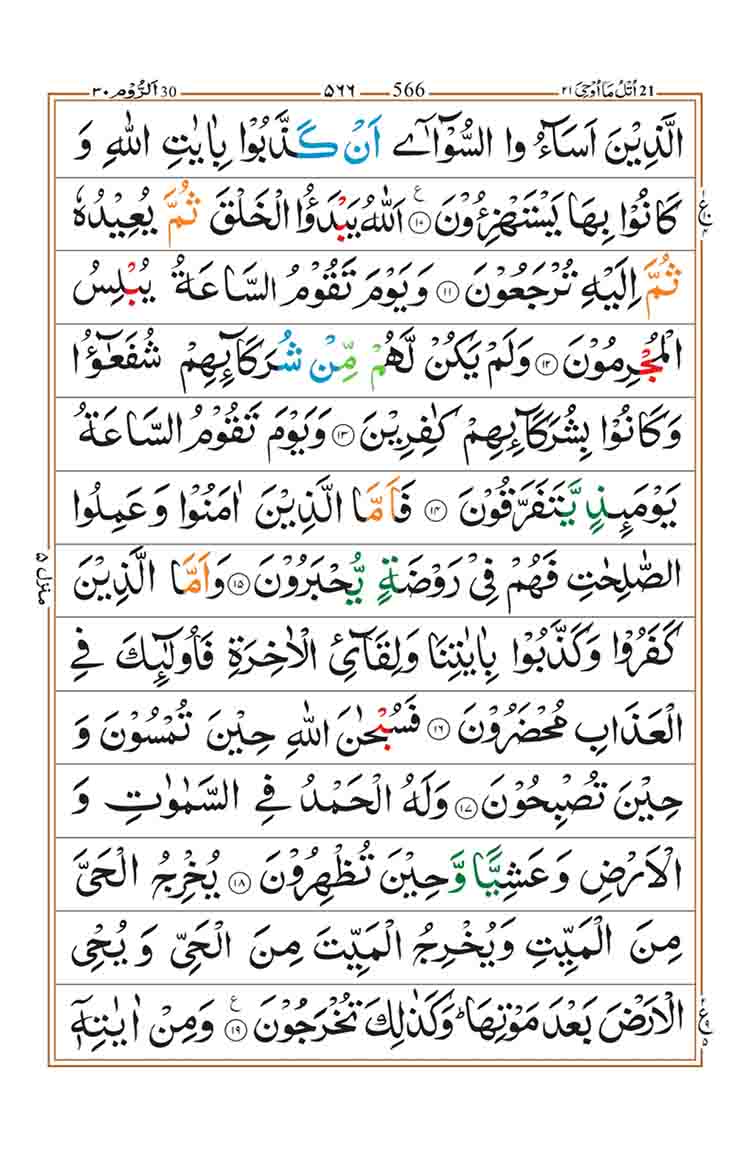 اُتْلُ مَاۤ اُوْحِیَ ٢١ 21 ٥٦٦ 566 اَلرُّوْم ٣٠ 30
الَّذِيْنَ اَسَآءُ وا السُّوْٓآٰى اَنْ كَذَّبُوْا بِاٰيٰتِ اللّٰهِ وَ
كَانُوْا بِهَا يَسْتَهْزِءُوْنَ ﴿١٠﴾ ع اَللّٰهُ يَبْدَؤُا الْخَلْقَ ثُمَّ يُعِيْدُهٗ
ثُمَّ اِلَيْهِ تُرْجَعُوْنَ ﴿١١﴾ وَيَوْمَ تَقُوْمُ السَّاعَةُ يُبْلِسُ
الْمُجْرِمُوْنَ ﴿١٢﴾ وَلَمْ يَكُنْ لَّهُمْ مِّنْ شُرَكَآئِهِمْ شُفَعٰٓؤُا
وَكَانُوْا بِشُرَكَآئِهِمْ كٰفِرِيْنَ ﴿١٣﴾ وَيَوْمَ تَقُوْمُ السَّاعَةُ
يَوْمَئِذٍ يَّتَفَرَّقُوْنَ ﴿١٤﴾ فَاَمَّا الَّذِيْنَ اٰمَنُوْا وَعَمِلُوا
الصّٰلِحٰتِ فَهُمْ فِيْ رَوْضَةٍ يُّحْبَرُوْنَ ﴿١٥﴾ وَاَمَّا الَّذِيْنَ
كَفَرُوْا وَكَذَّبُوْا بِاٰيٰتِنَا وَلِقَآئِ الْاٰخِرَةِ فَاُولٰٓئِكَ فِي
الْعَذَابِ مُحْضَرُوْنَ ﴿١٦﴾ فَسُبْحٰنَ اللّٰهِ حِيْنَ تُمْسُوْنَ وَ
حِيْنَ تُصْبِحُوْنَ ﴿١٧﴾ وَلَهُ الْحَمْدُ فِي السَّمٰوٰتِ وَ
الْاَرْضِ وَعَشِيًّا وَّحِيْنَ تُظْهِرُوْنَ ﴿١٨﴾ يُخْرِجُ الْحَيَّ
مِنَ الْمَيِّتِ وَيُخْرِجُ الْمَيِّتَ مِنَ الْحَيِّ وَيُحْيِ
الْاَرْضَ بَعْدَ مَوْتِهَاؕ وَكَذٰلِكَ تُخْرَجُوْنَ ﴿١٩﴾ ع وَمِنْ اٰيٰتِهٖۤ
منزل ٥